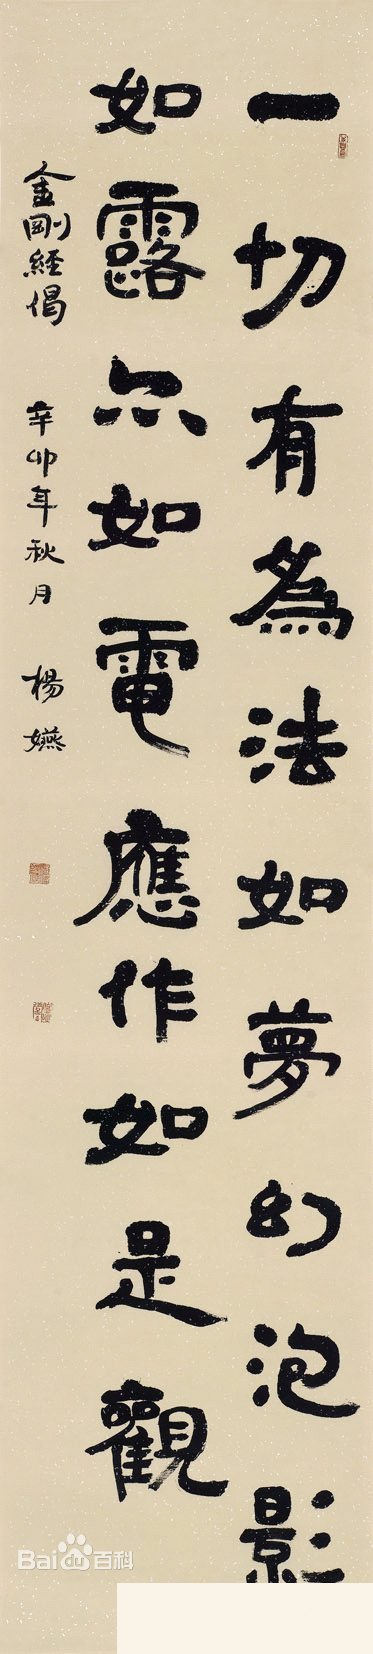 一切有為法如夢幻泡影
如露亦如電應作如是觀
金剛經偈 辛卯年秋月 楊嬿
Bai百科